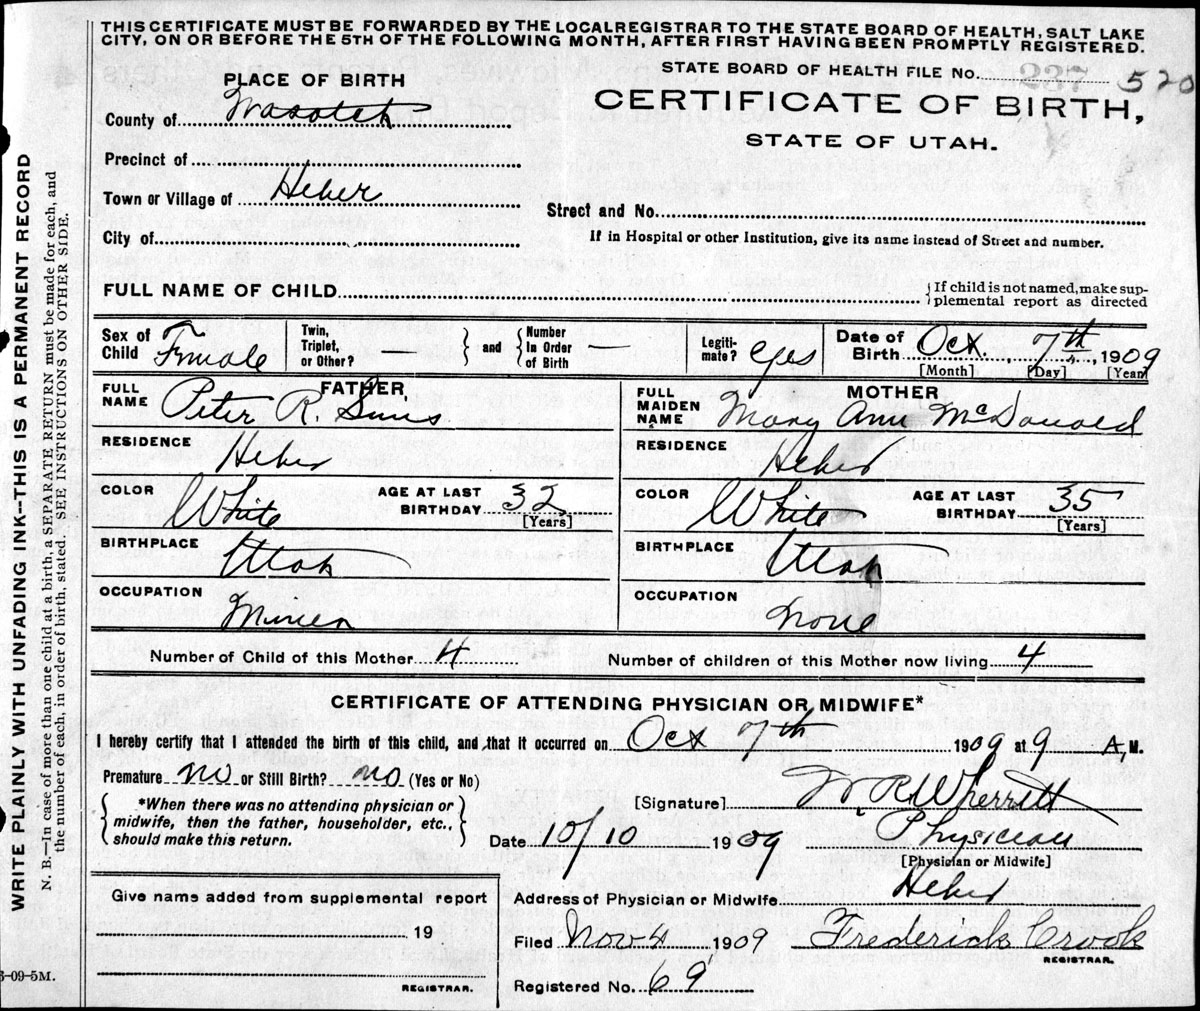 THIS CERTIFICATE MUST BE FORWARDED BY THE LOCAL REGISTRAR TO THE STATE BOARD OF HEALTH, SALT LAKE
CITY, ON OR BEFORE THE 5TH OF THE FOLLOWING MONTH, AFTER FIRST HAVING BEEN PROMPTLY REGISTERED.
STATE BOARD OF HEALTH FILE No. 237 520
PLACE OF BIRTH
CERTIFICATE OF BIRTH,
STATE OF UTAH.
County of Wasatch
Precinct of
Town or Village of Heber
Street and No.
City of
If in Hospital or other Institution, give its name instead of Street and number.
FULL NAME OF CHILD
{If child is not named, make sup-
plemental report as directed
Sex of Child Female
Twin, Triplet, or Other? —
and
Number In Order of Birth —
Legiti-mate? Yes
Date of Birth Oct. 7th, 1909
[Month] [Day] [Year]
FATHER
FULL NAME Peter R. Sims
RESIDENCE Heber
COLOR White
AGE AT LAST BIRTHDAY 32
[Years]
BIRTHPLACE Utah
OCCUPATION Miner
MOTHER
FULL MAIDEN NAME Mary Ann McDonald
RESIDENCE Heber
COLOR White
AGE AT LAST BIRTHDAY 35
[Years]
BIRTHPLACE Utah
OCCUPATION None
Number of Child of this Mother 4
Number of children of this Mother now living 4
CERTIFICATE OF ATTENDING PHYSICIAN OR MIDWIFE*
I hereby certify that I attended the birth of this child, and that it occurred on Oct 7th 1909 at 9 A, M.
Premature no or Still Birth? no (Yes or No)
*When there was no attending physician or
midwife, then the father, householder, etc.,
should make this return.
[Signature] W. R. Wherritt
Date 10/10 1909
Physician
[Physician or Midwife]
Address of Physician or Midwife Heber
Give name added from supplemental report
19
REGISTRAR.
Filed Nov 4 1909 Frederick Crook
REGISTRAR.
Registered No. 69
3-09-5M.
WRITE PLAINLY WITH UNFADING INK--THIS IS A PERMANENT RECORD
N. B.—In case of more than one child at a birth, a SEPARATE RETURN must be made for each, and
the number of each, in order of birth, stated. SEE INSTRUCTIONS ON OTHER SIDE.